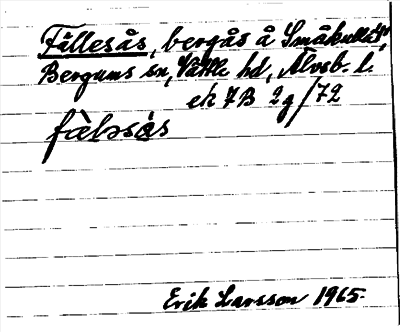 Fällesås, bergås å Småkullås,
Bergums sn, Vättle hd, Älvsb. l.
ek 7B 2g/72
fàləsås
Erik Larsson 1965.